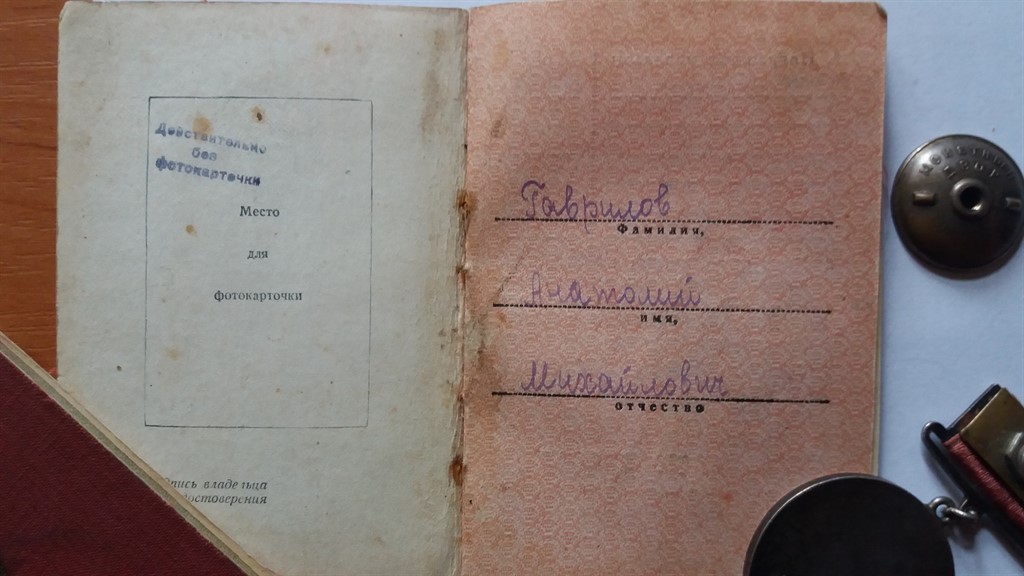 Действительно
без
фотокарточки
Место
для
фотокарточки
владельца
достоверения
Гаврилов
Фамилия,
Анатолий
имя,
Михайлович
отчество